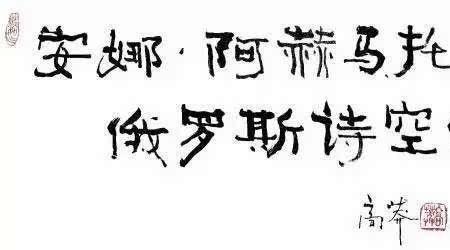 安娜·阿赫马托
俄罗斯诗空
高莽